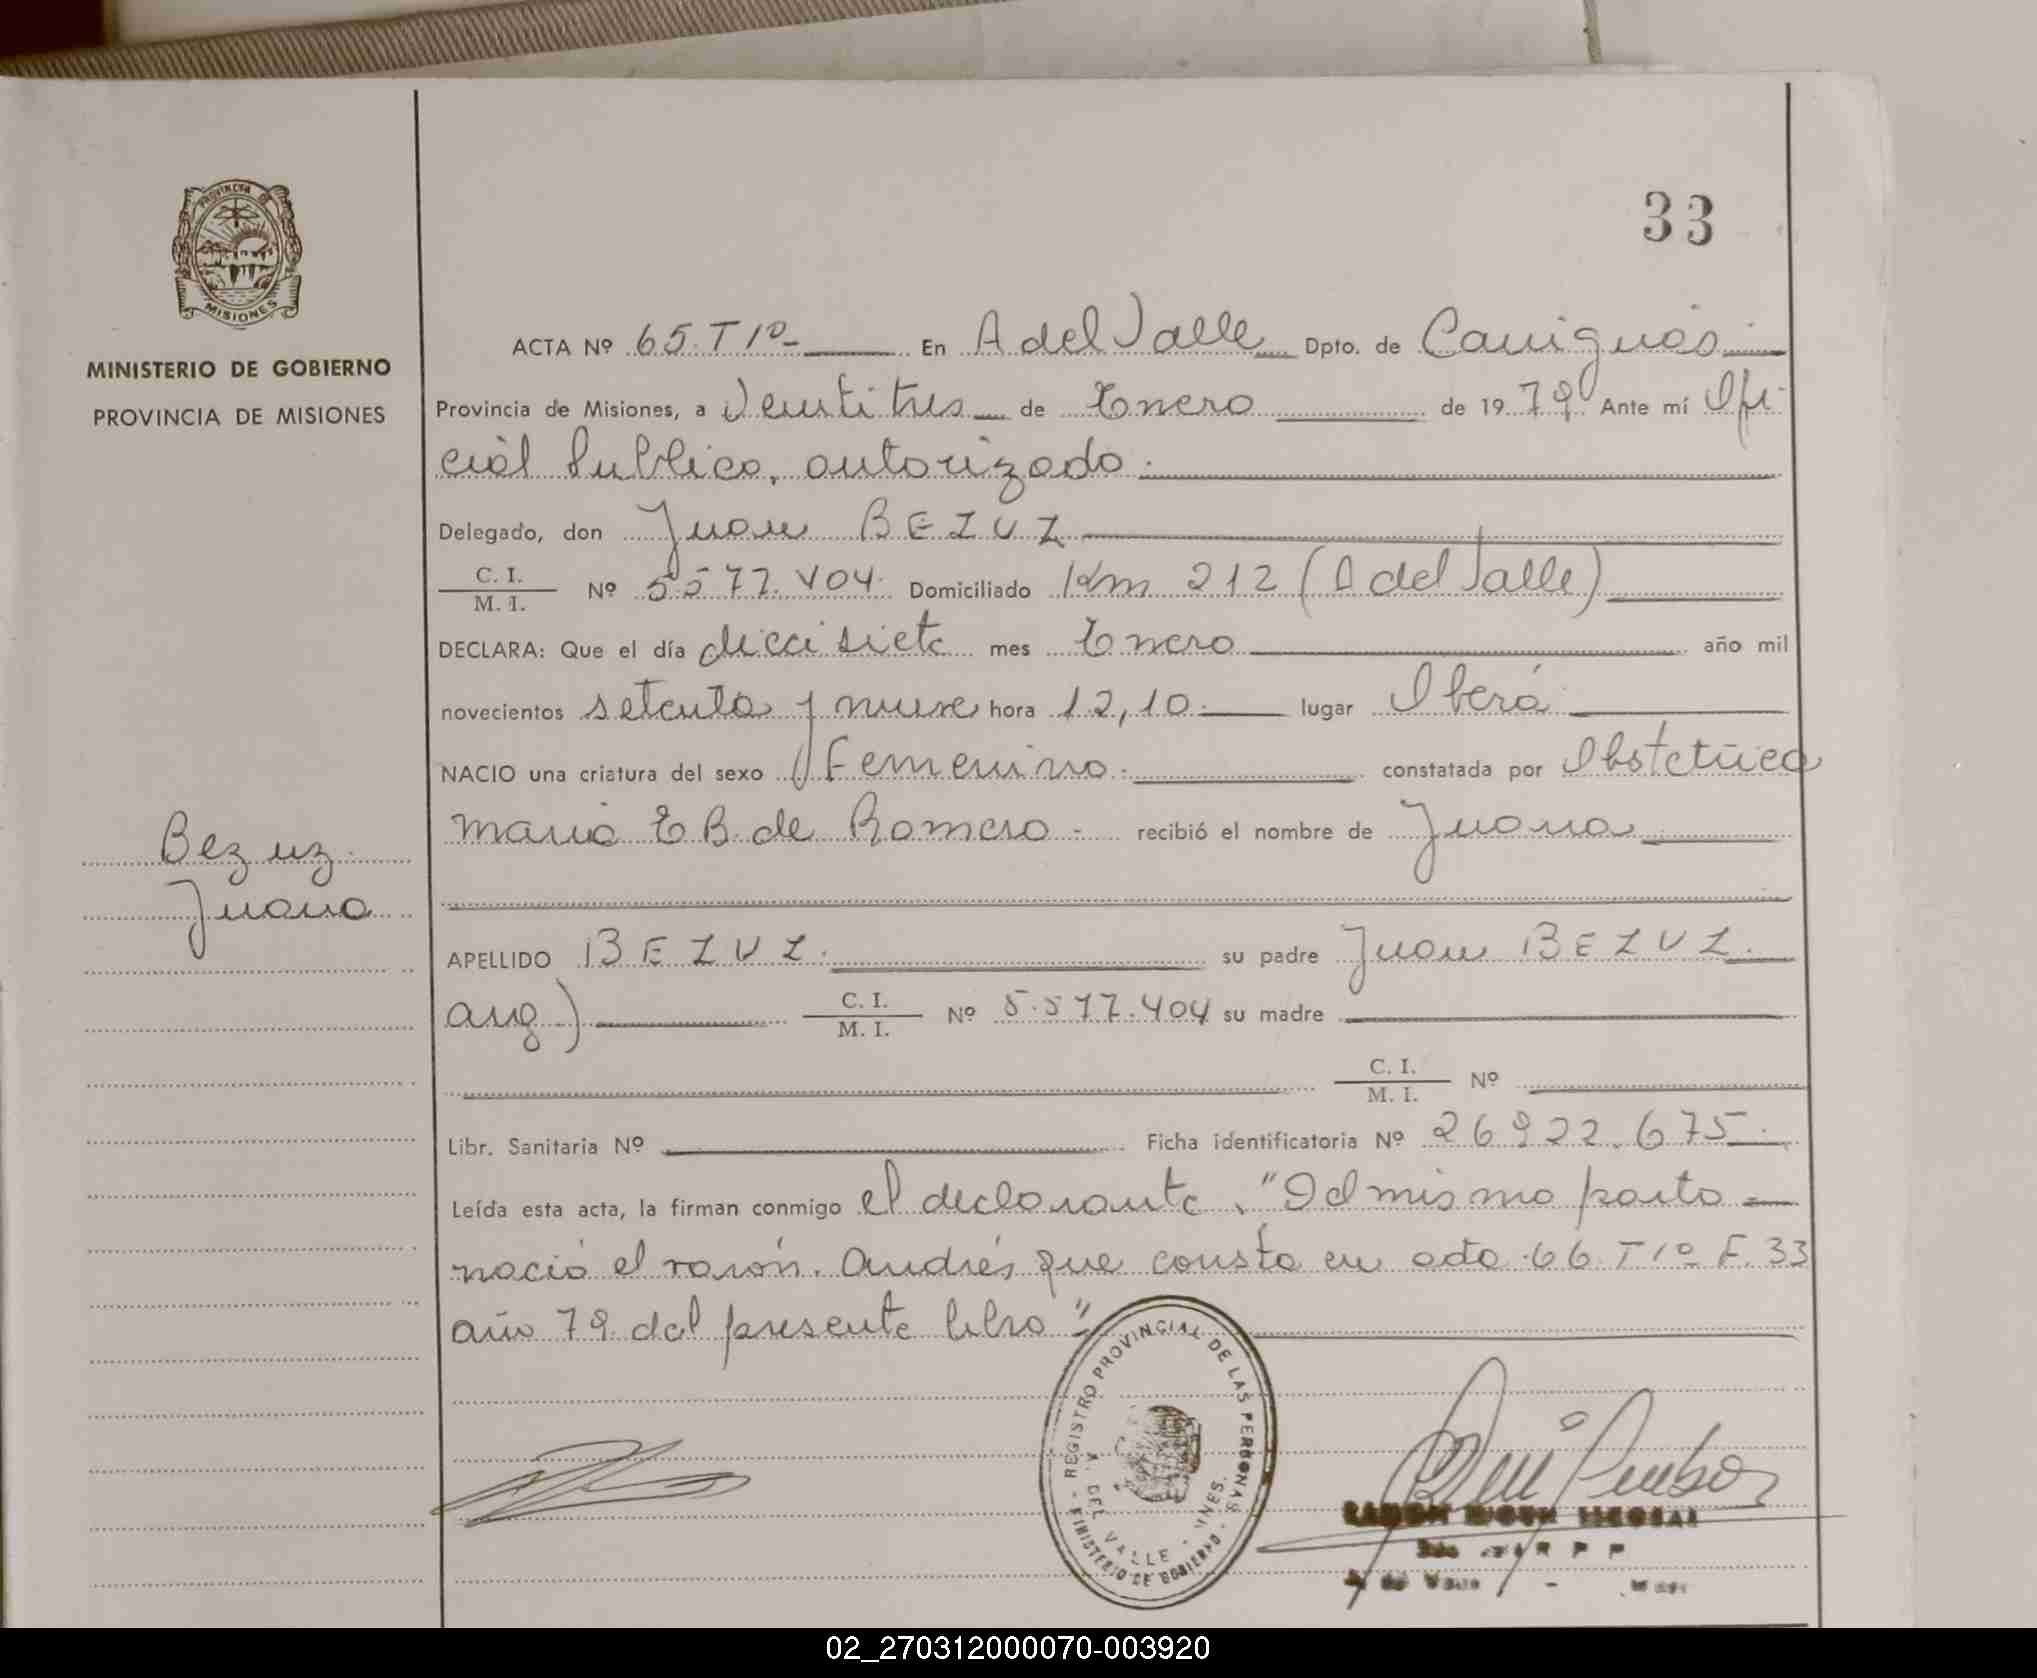 33
PROVINCIA
MISIONES
MINISTERIO DE GOBIERNO
PROVINCIA DE MISIONES
ACTA Nº 65. T 1º- En A del Valle Dpto. de Cainguás
Provincia de Misiones, a Veintitres de Enero de 1979 Ante mí Ofi-
cial Publico, autorizado.
Delegado, don Juan BEZUZ
C. I.
M. I. Nº 5577.404. Domiciliado Km 212 (A del Valle)
DECLARA: Que el día diecisiete mes Enero año mil
novecientos setenta y nueve hora 12,10. lugar Oberá
NACIO una criatura del sexo Femenino. constatada por Obstetrica
Maria E B. de Romero - recibió el nombre de Juana
Bezuz.
Juana
APELLIDO BEZUZ. su padre Juan BEZUZ.
arg) C. I.
M. I. Nº 5.577.404 su madre
C. I.
M. I. Nº
Libr. Sanitaria Nº Ficha identificatoria Nº 26922.675.
Leída esta acta, la firman conmigo el declarante. "Del mismo parto
nació el varón. Andrés que consta en acta 66. T 1º F. 33
año 79. del presente libro"
REGISTRO PROVINCIAL DE LAS PERSONAS
A. DEL VALLE
MINISTERIO DE GOBIERNO
02_270312000070-003920